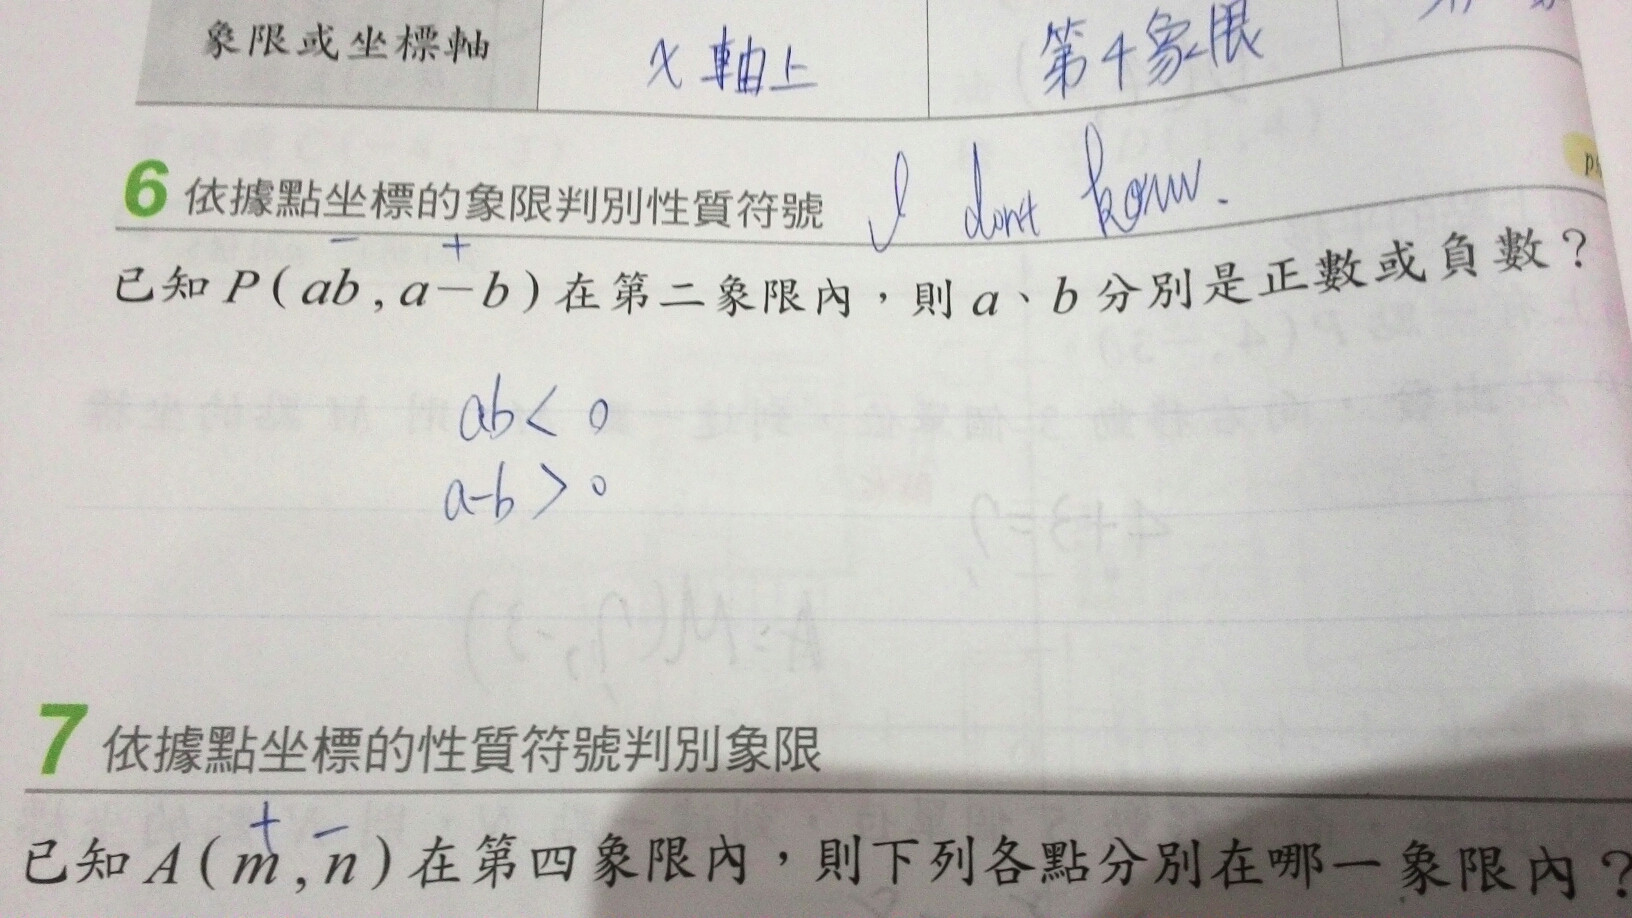 象限或坐標軸 x 軸上 第4象限
6 依據點坐標的象限判別性質符號 I dont konw.
− +
已知 P(ab, a−b) 在第二象限內，則 a、b 分別是正數或負數？
ab < 0
a-b > 0
7 依據點坐標的性質符號判別象限
+ −
已知 A(m, n) 在第四象限內，則下列各點分別在哪一象限內？